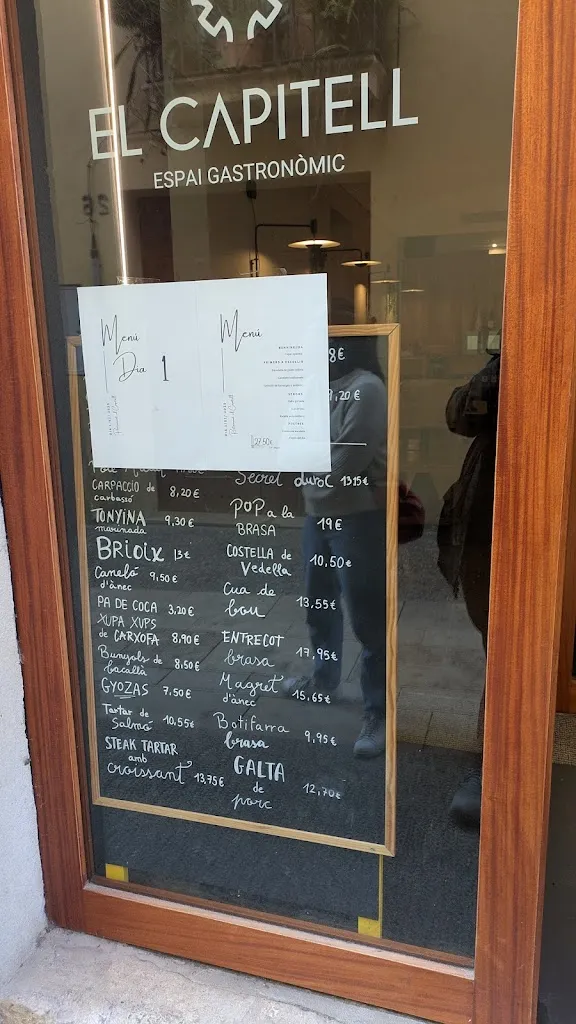 EL CAPITELL
ESPAI GASTRONÒMIC
Menú
Dia 1
Menú
27,50€
8€
9,20€
CARPACCIO de
carbassó 8,20€
TONYINA
marinada 9,30€
BRIOIX 13€
Caneló
d'ànec 9,50€
PA DE COCA 3,20€
XUPA XUPS
de CARXOFA 8,90€
Bunyols de
bacallà 8,50€
GYOZAS 7,50€
Tartar de
Salmó 10,55€
STEAK TARTAR
amb
croissant 13,75€
Secret duroc 13,15€
POP a la
BRASA 19€
COSTELLA de
Vedella 10,50€
Cua de
bou 13,55€
ENTRECOT
brasa 17,95€
Magret
d'ànec 15,65€
Botifarra
brasa 9,95€
GALTA
de
porc 12,70€